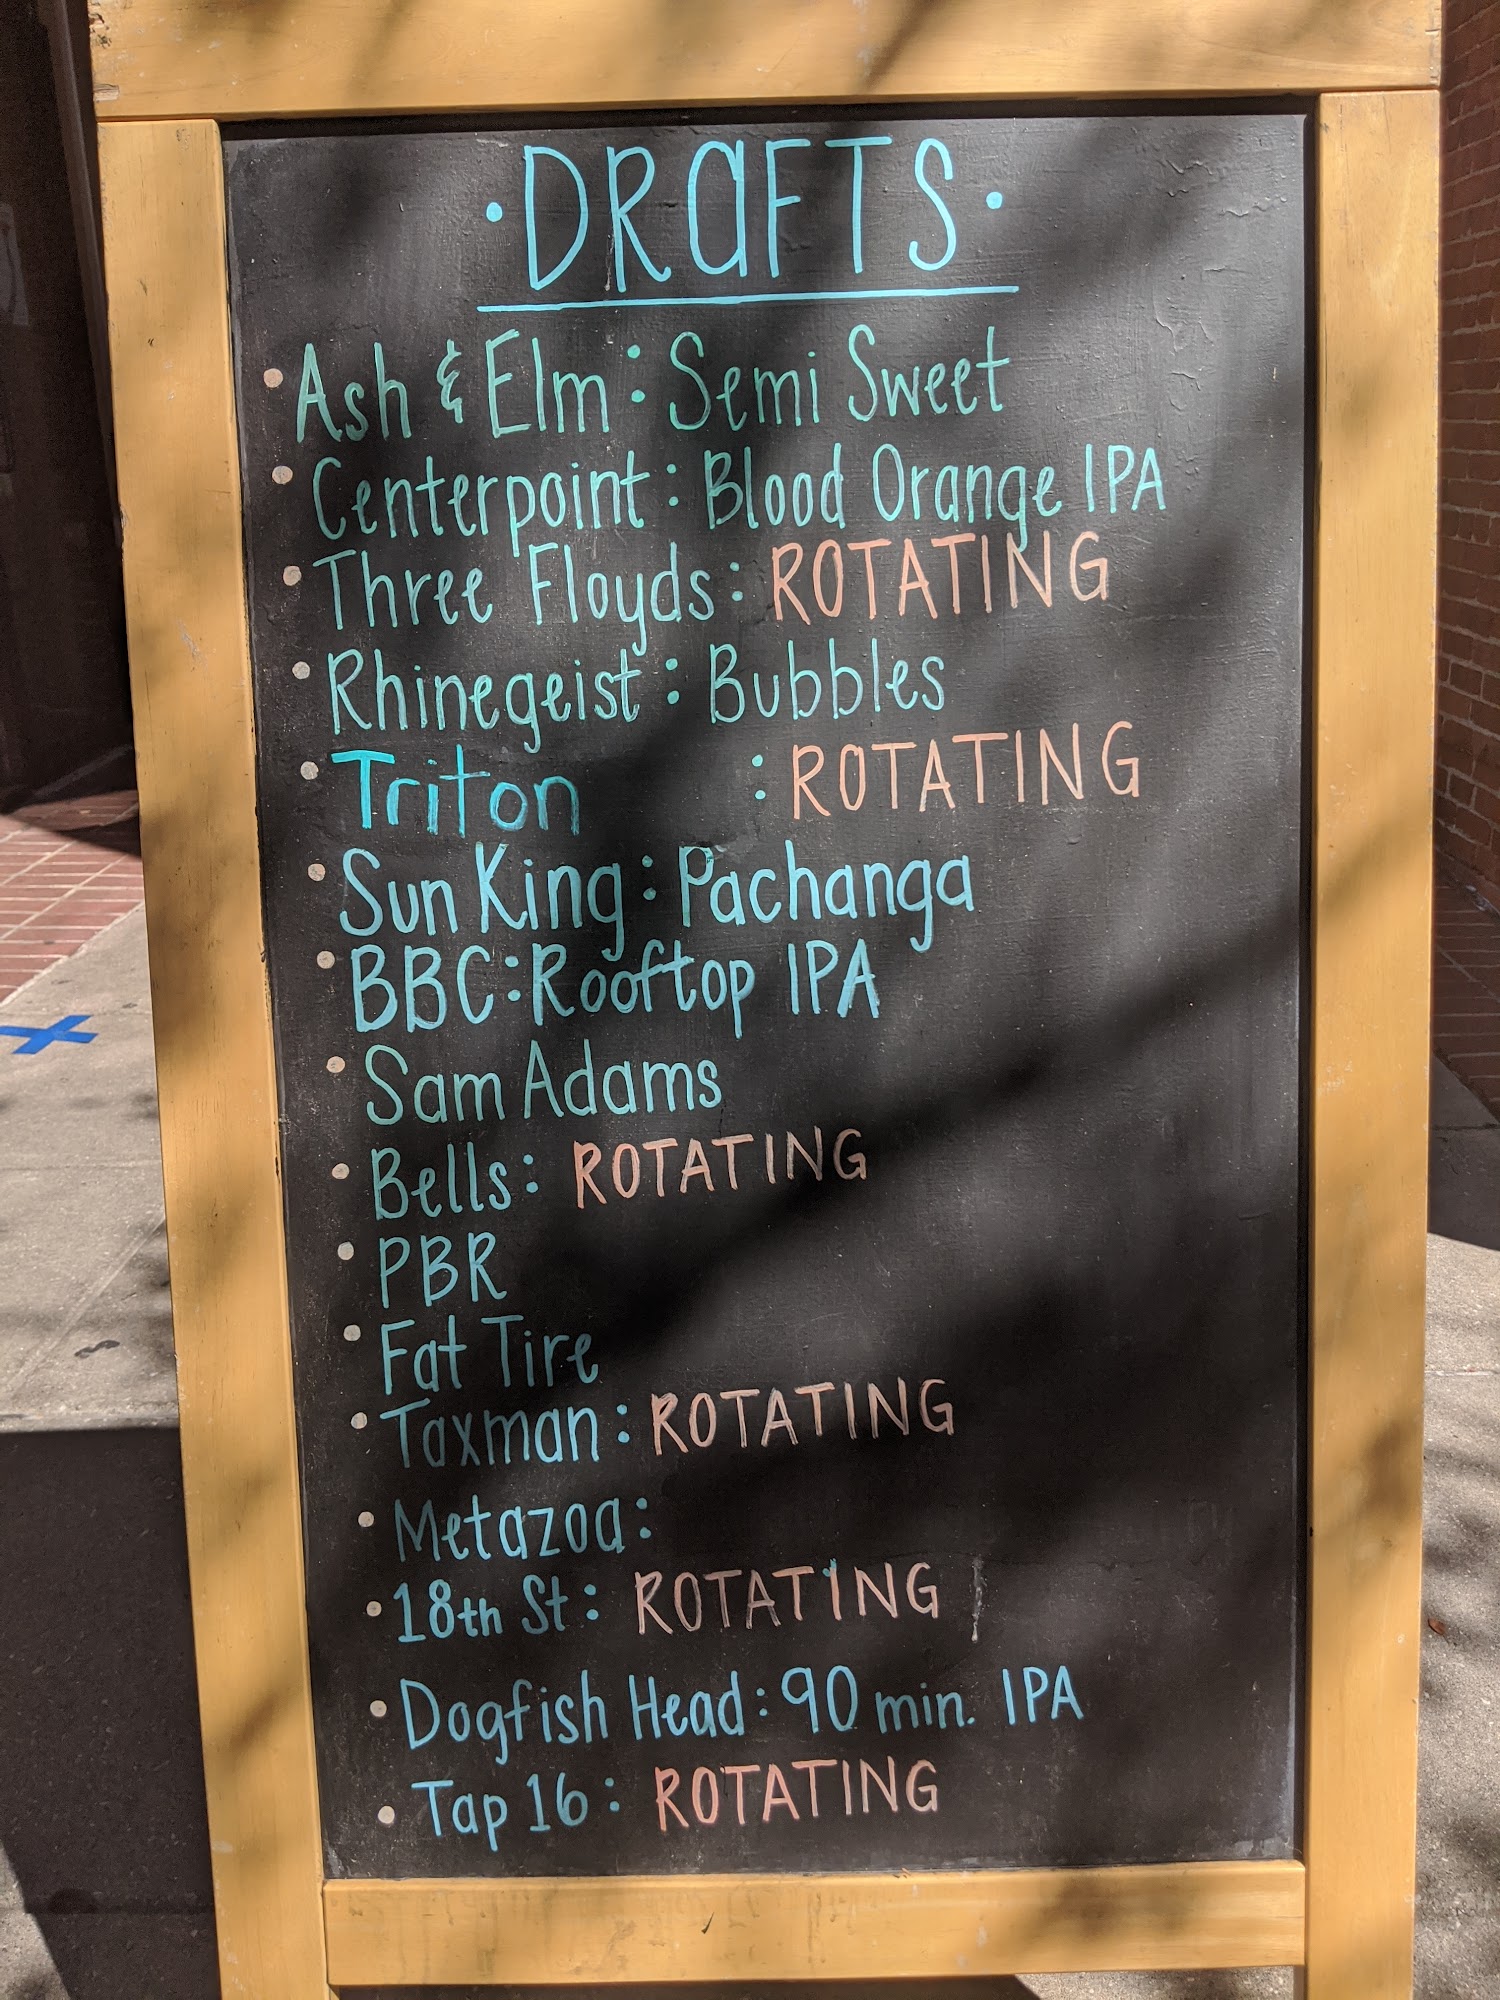 · DRAFTS ·
• Ash & Elm: Semi Sweet
• Centerpoint: Blood Orange IPA
• Three Floyds: ROTATING
• Rhinegeist: Bubbles
• Triton : ROTATING
• Sun King: Pachanga
• BBC: Rooftop IPA
• Sam Adams
• Bells: ROTATING
• PBR
• Fat Tire
• Taxman: ROTATING
• Metazoa:
• 18th St: ROTATING
• Dogfish Head: 90 min. IPA
• Tap 16: ROTATING